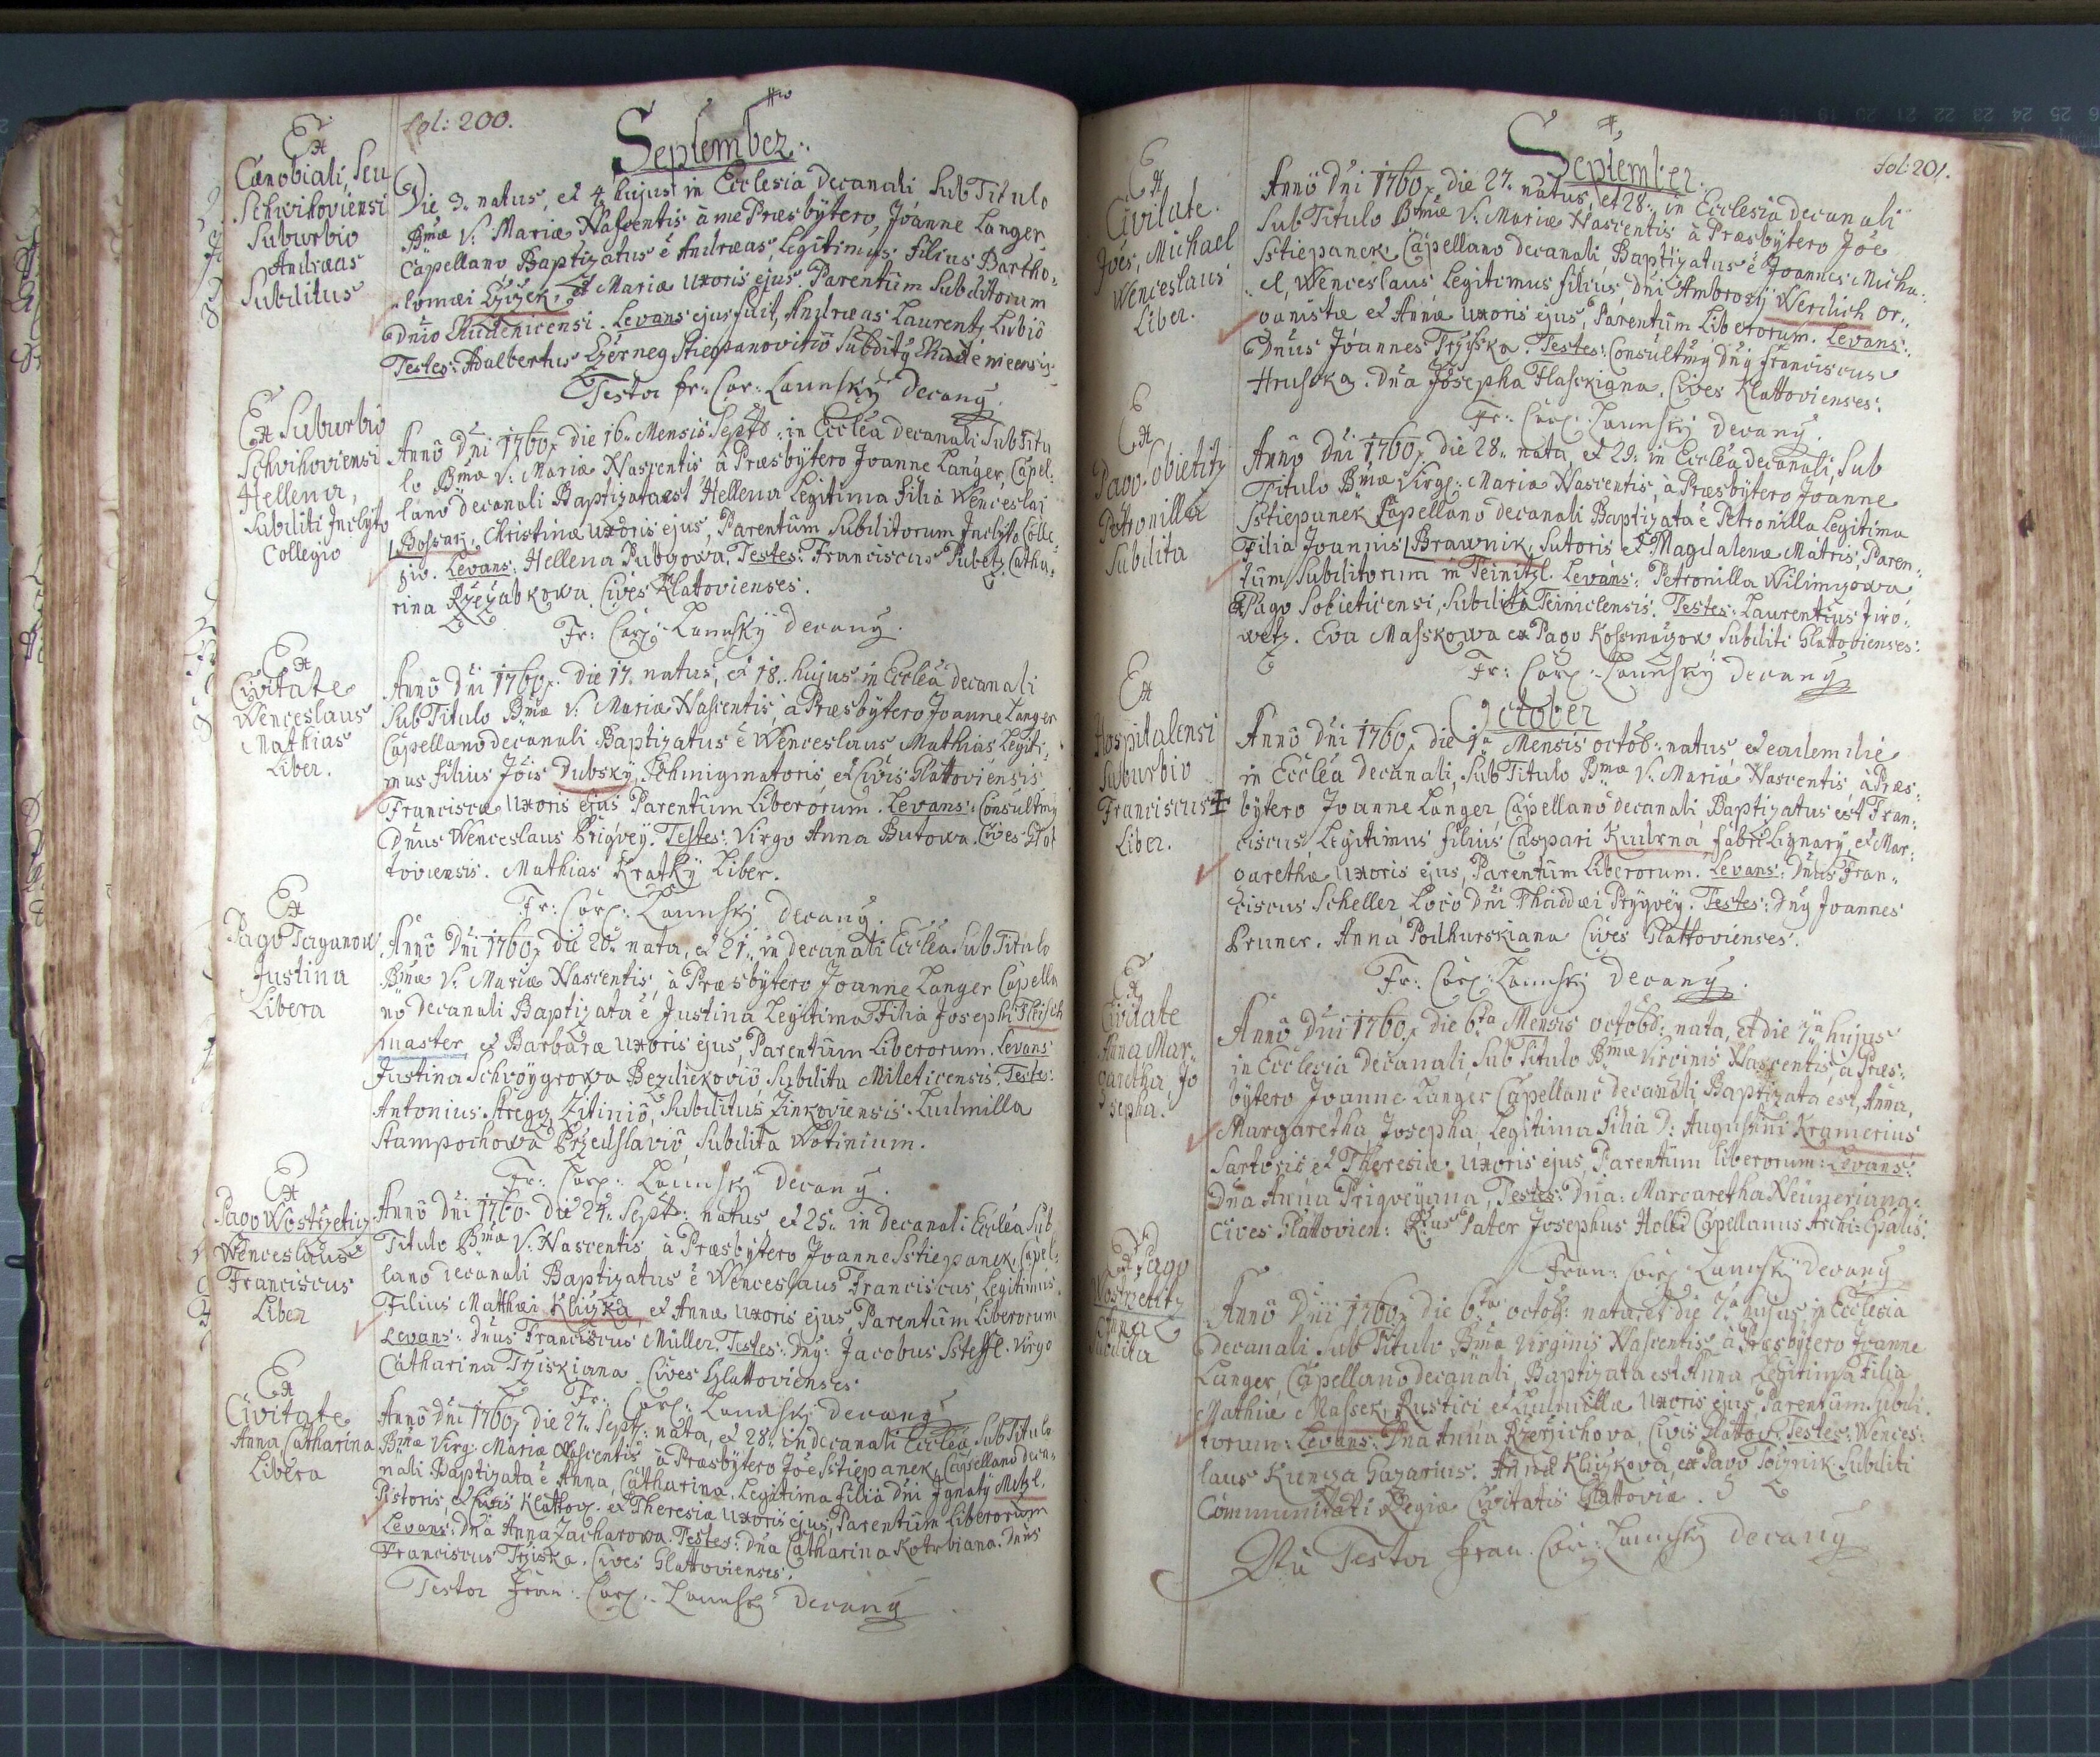 fol: 200.
September.
Ex
Cœnobiali, seu
Schwihoviensi
Suburbio
Andræas
Subditus
Die 3. natus, et 4. hujus in Ecclesia decanali sub Titulo
Bmæ V. Mariæ Nascentis à me Præsbÿtero, Joanne Langer
Capellano Baptizatus ē Andræas, Legitimus filius Bartho-
lomæi et Mariæ uxoris ejus. Parentum Subditorum
Levans ejus fuit, Andræas Laurentz Lubiō
Testes: Adalbertus Stiepanovitiō
Testor fr: Car: Launskÿ decanÿ.
Ex Suburbio
Schvihoviensi
Hellena,
Subditi Inclÿto
Collegio
Annō Dni 1760. die 16. Mensis Septō: in Ecclēa decanali Sub Titu
lo Bmæ V. Mariæ Nascentis à Præsbÿtero Joanne Langer, Capel-
lano decanali Baptizata est Hellena Legitima Filia Wenceslai
Christinæ uxoris ejus, Parentum Subditorum Inclÿto Colle-
gio. Levans: Hellena Pubgowa. Testes: Franciscus Pubetz. Catha-
rina Rzezabkowa Cives Klatovienses.
Fr: Carl: Launskÿ decanÿ.
Ex
Civitate
Wenceslaus
Mathias
Liber.
Annō Dni 1760. die 17. natus, et 18. hujus in Ecclēa decanali
Sub Titulo Bmæ V. Mariæ Nascentis, à Præsbÿtero Joanne Langer
Capellano decanali Baptizatus ē Wenceslaus Mathias Legiti-
mus filius Jōis Dubskÿ, et Civis Glattoviensis
Franciscæ uxoris ejus Parentum Liberorum. Levans: Consultmÿ
Dnus Wenceslaus Prigveÿ. Testes: Virgo Anna Butowa. Cives Glat
toviensis. Mathias Kratkÿ Liber.
Fr: Carl: Launskÿ decanÿ.
Ex
Pago Taganow
Justina
Libera
Annō Dni 1760. die 20. nata, et 21. in decanali Ecclēa Sub Titulo
Bmæ V. Mariæ Nascentis, à Præsbÿtero Joanne Langer Capella
nō decanali Baptizata ē Justina Legitima Filia Josephi Fleisch
master, et Barbaræ uxoris ejus, Parentum Liberorum. Levans
Justina Schvöÿgrowa Bezdiekoviō, Subdita Mileticensis. Testes:
Antonius Zitiniō, Subditus Zinkoviensis. Ludmilla
Stampochowa Przedslaviō, Subdita Wotinium.
Fr: Carl: Launskÿ decanÿ.
Ex
Pago Wostrzetitz
Wenceslaus
Franciscus
Liber
Annō Dni 1760. die 24. Septō: natus et 25. in decanali Ecclēa, Sub
Titulo Bmæ V. Nascentis, à Præsbÿtero Joanne Sstiepanek, Capel-
lano decanali Baptizatus ē Wenceslaus Franciscus, Legitimus
Filius Matthæi Kliczka, et Annæ uxoris ejus, Parentum Liberorum
Levans: Dnus Franciscus Müller. Testes: Dnÿ: Jacobus Ssteffl. Virgo
Catharina Trziskiana. Cives Glattovienses
Fr: Carl: Launskÿ decanÿ
Ex
Civitate
Anna Catharina
Libera
Annō Dni 1760. die 27. Septō: nata, et 28. in decanali Ecclēa Sub Titulo
Bmæ Virg: Mariæ Nascentis à Præsbÿtero Jōe Sstiepanek, Capellano deca-
nali Baptizata ē Anna, Catharina, Legitima filia Dni Ignatÿ Metzl,
Pistoris, et Civis Klattov. et Theresiæ uxoris ejus, Parentum Liberorum
Levans: Dna Anna Zacharowa. Testes: Dna Catharina Kotrbiana. Dnus
Franciscus Trziska, Cives Glattovienses.
Testor Fran: Carl: Launskÿ decanÿ
fol: 201.
September.
Ex
Civitate.
Joēs, Michael
Wenceslaus
Liber.
Annō Dni 1760. die 27. natus, et 28. in Ecclesia decanali
Sub Titulo Bmæ V. Mariæ Nascentis à Præsbÿtero Jōe
Sstiepanek, Capellano decanali Baptizatus ē Joannes Micha-
el, Wenceslaus Legitimus filius, Dni Ambrosÿ Werdich or-
ganistæ et Annæ uxoris ejus, Parentum Liberorum. Levans:
Dnus Joannes Trziska. Testes: Consultmÿ Dnÿ Franciscus
Hrusska. Dna Josepha Cives Klattovienses.
Fr: Carl: Launskÿ decanÿ.
Ex
Pago Sobietitz
Petronilla
Subdita
Annō Dni 1760. die 28. nata, et 29. in Ecclēa decanali, Sub
Titulo Bmæ Virg: Mariæ Nascentis, à Præsbÿtero Joanne
Sstiepanek Capellano decanali Baptizata ē Petronilla Legitima
Filia Joannis Brawnik, Sutoris et Magdalenæ Matris, Paren-
tum Subditorum in Teinitzl. Levans: Petronilla Wilimzowa
ex Pago Sobieticensi, Subdita Teiniclensis. Testes: Laurentius Jiro-
wetz. Eva Masskowa ex Pago Kossmaczow, Subditi Glattovienses:
Fr: Carl: Launskÿ decanÿ
October
Ex
Hospitalensi
Suburbio
Franciscus ‡
Liber.
Annō Dni 1760. die 1a Mensis octob: natus et eadem die
in Ecclēa decanali, Sub Titulo Bmæ V. Mariæ Nascentis à Præs-
bÿtero Joanne Langer, Capellano decanali Baptizatus est Fran-
ciscus, Legitimus filius Caspari Kudrna, fabri Lignarÿ, et Mar-
garethæ uxoris ejus, Parentum Liberorum. Levans: Dnus Fran-
ciscus Scheller, Loco Dni Thaddæi Testes: Dnÿ Joannes
Pruner. Anna Podhurskiana Cives Glattovienses.
Fr: Carl: Launskÿ decanÿ.
Ex
Civitate
Anna Mar-
garetha, Jo
sepha.
Annō Dni 1760. die 6ta Mensis octob: nata, et die 7a hujus
in Ecclesia decanali, Sub Titulo Bmæ Virginis Nascentis, à Præs-
bÿtero Joanne Langer Capellano decanali Baptizata est, Anna,
Margaretha, Josepha Legitima filia D: Augustini Kramerius
Sartoris et Theresiæ uxoris ejus, Parentum liberorum: Levans:
Dna Anna Prigveÿana, Testes: Dna: Margaretha Neumeriana.
Cives Glattovien: Rdus Pater Josephus Capellanus
Fran: Carl: Launskÿ decanÿ
Ex Pago
Wostrzetitz
Anna
Subdita
Annō Dni 1760. die 6ta octob: nata, et die 7a hujus in Ecclesia
decanali Sub Titulo Bmæ Virginis Nascentis à Præsbÿtero Joanne
Langer, Capellano decanali, Baptizata est Anna Legitima Filia
Mathiæ Massek, Rustici et Ludmillæ uxoris ejus Parentum Subdi-
torum: Levans: Dna Anna Rzerzichova, Civis Glattov. Testes: Wences-
laus Anna Kliczkova, ex Pago Subditi
Communitati Regiæ Civitatis Glattoviæ.
Ita Testor Fran: Carl: Launskÿ decanÿ